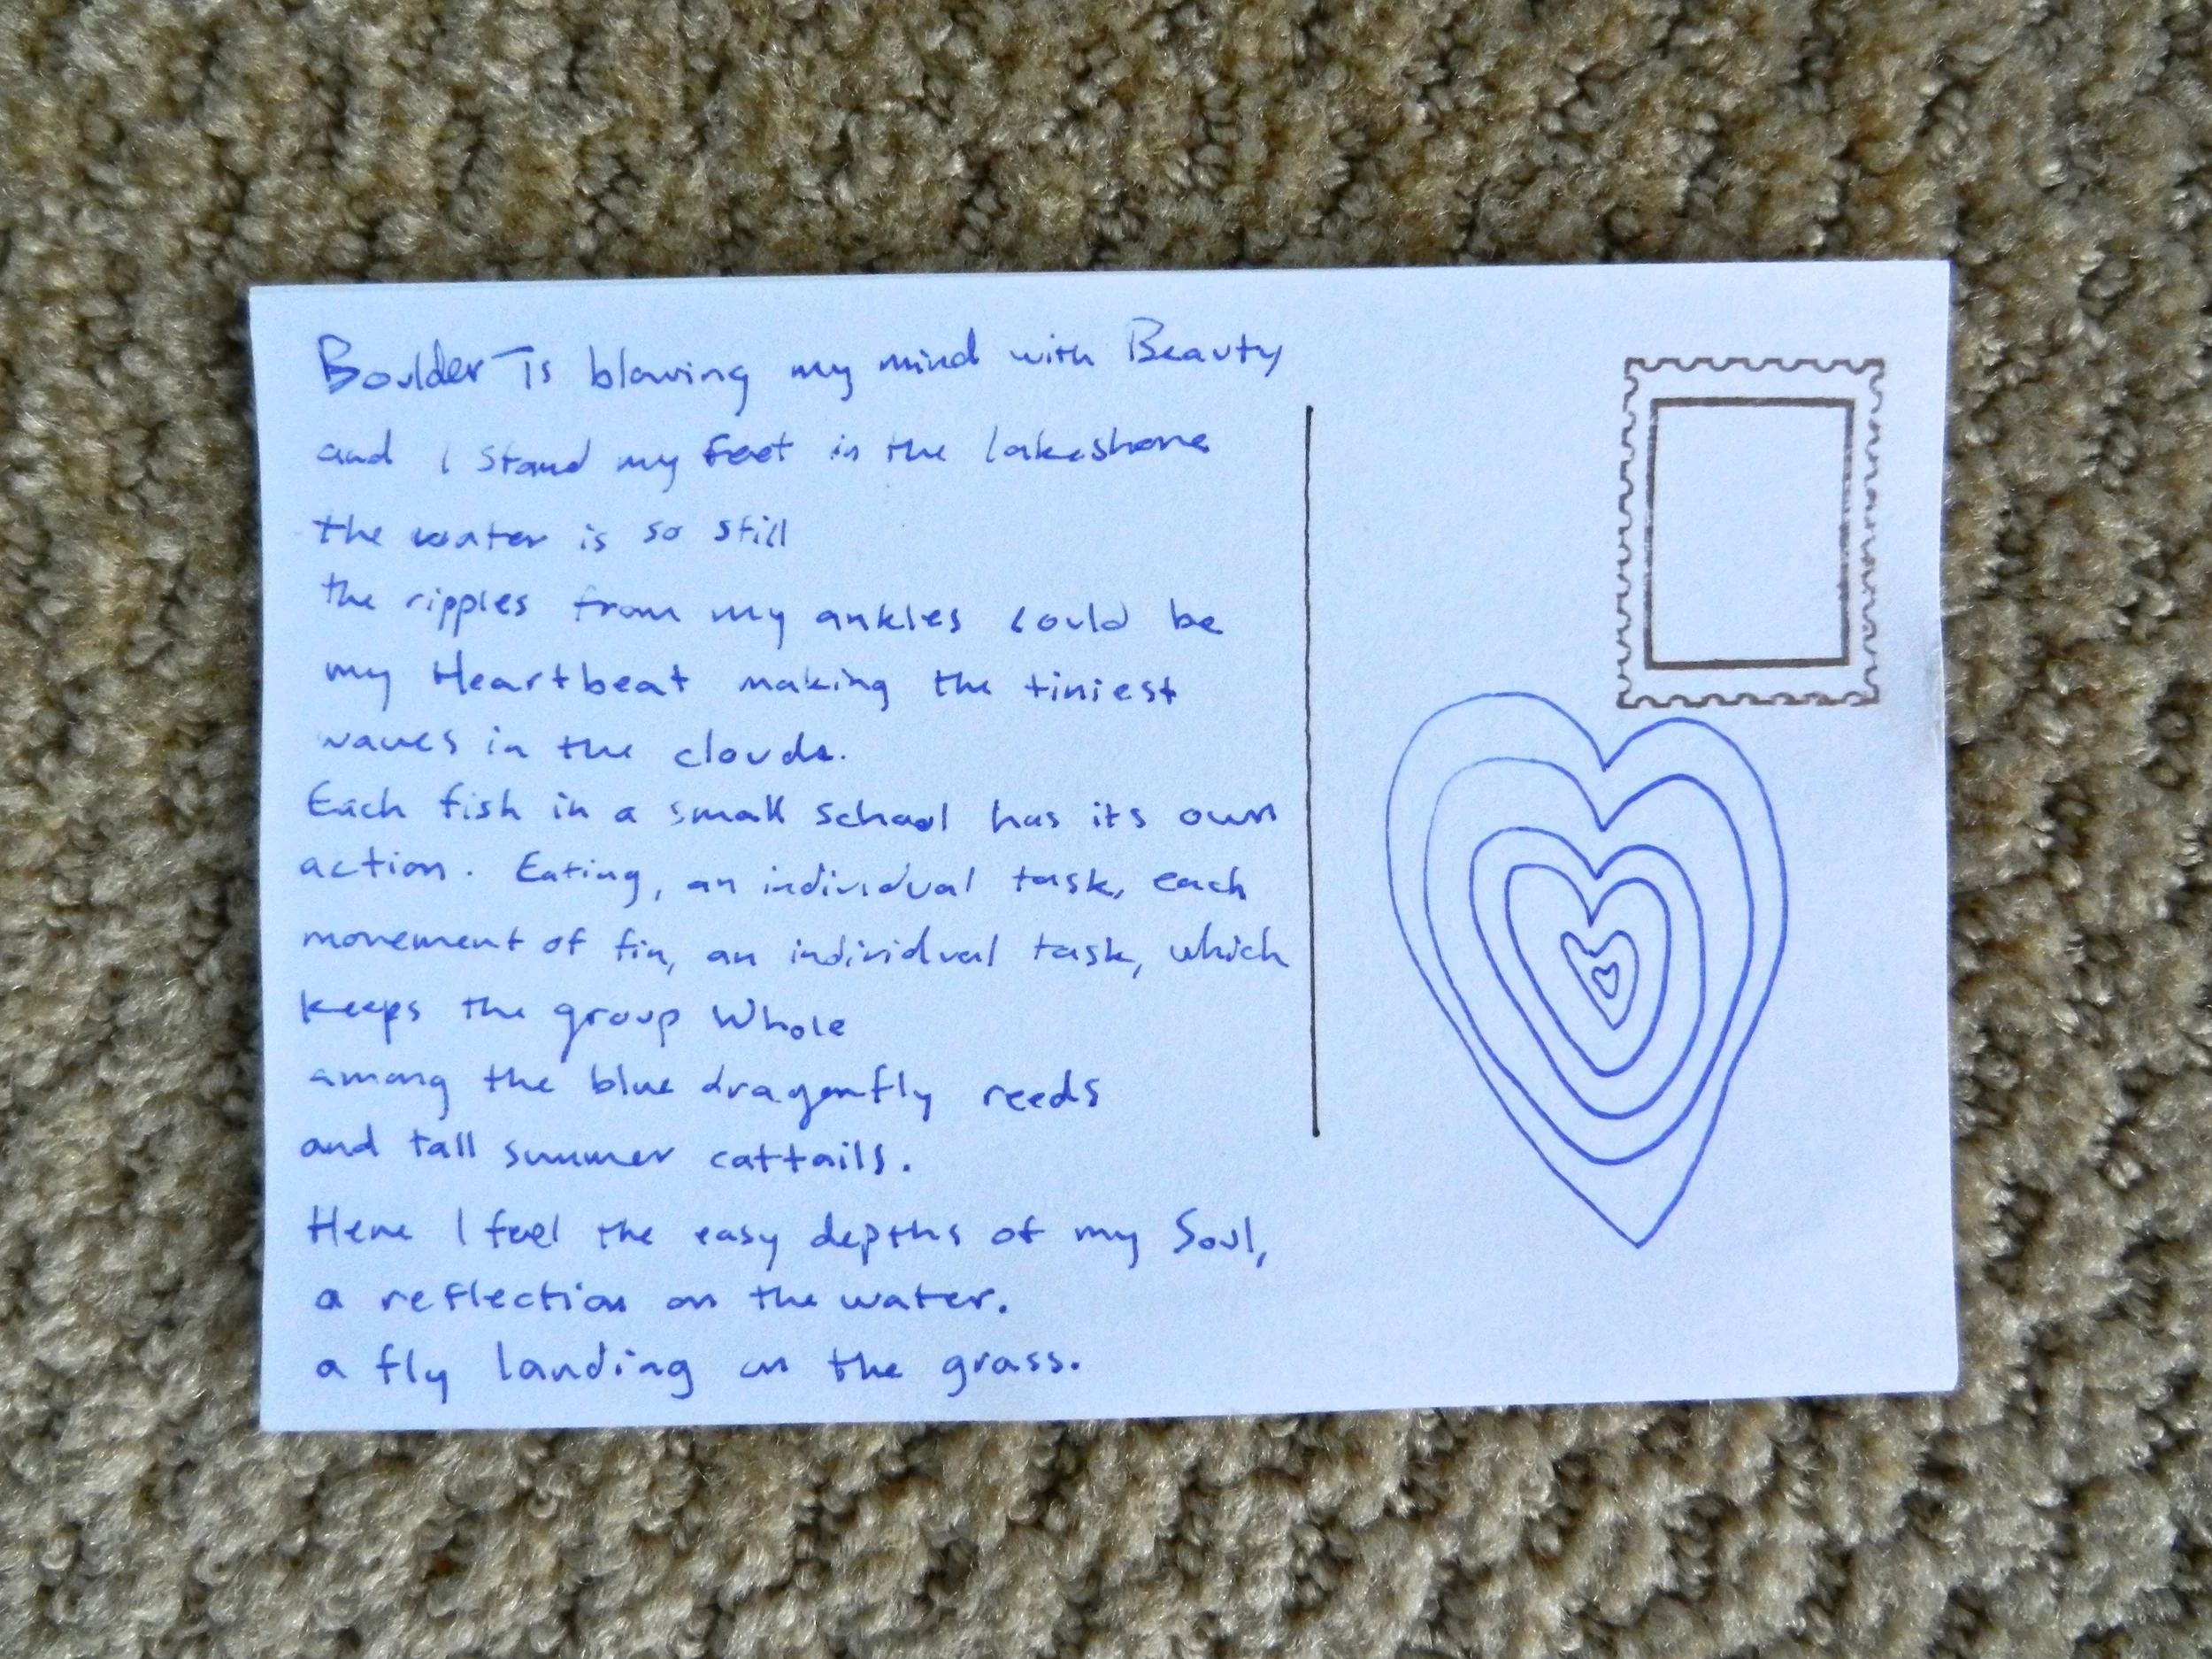 Boulder Is blowing my mind with Beauty
and I stand my feet in the lakeshore
the water is so still
the ripples from my ankles could be
my Heartbeat making the tiniest
waves in the clouds.
Each fish in a small school has its own
action. Eating, an individual task, each
movement of fin, an individual task, which
keeps the group Whole
among the blue dragonfly reeds
and tall summer cattails.
Here I feel the easy depths of my Soul,
a reflection on the water.
a fly landing on the grass.